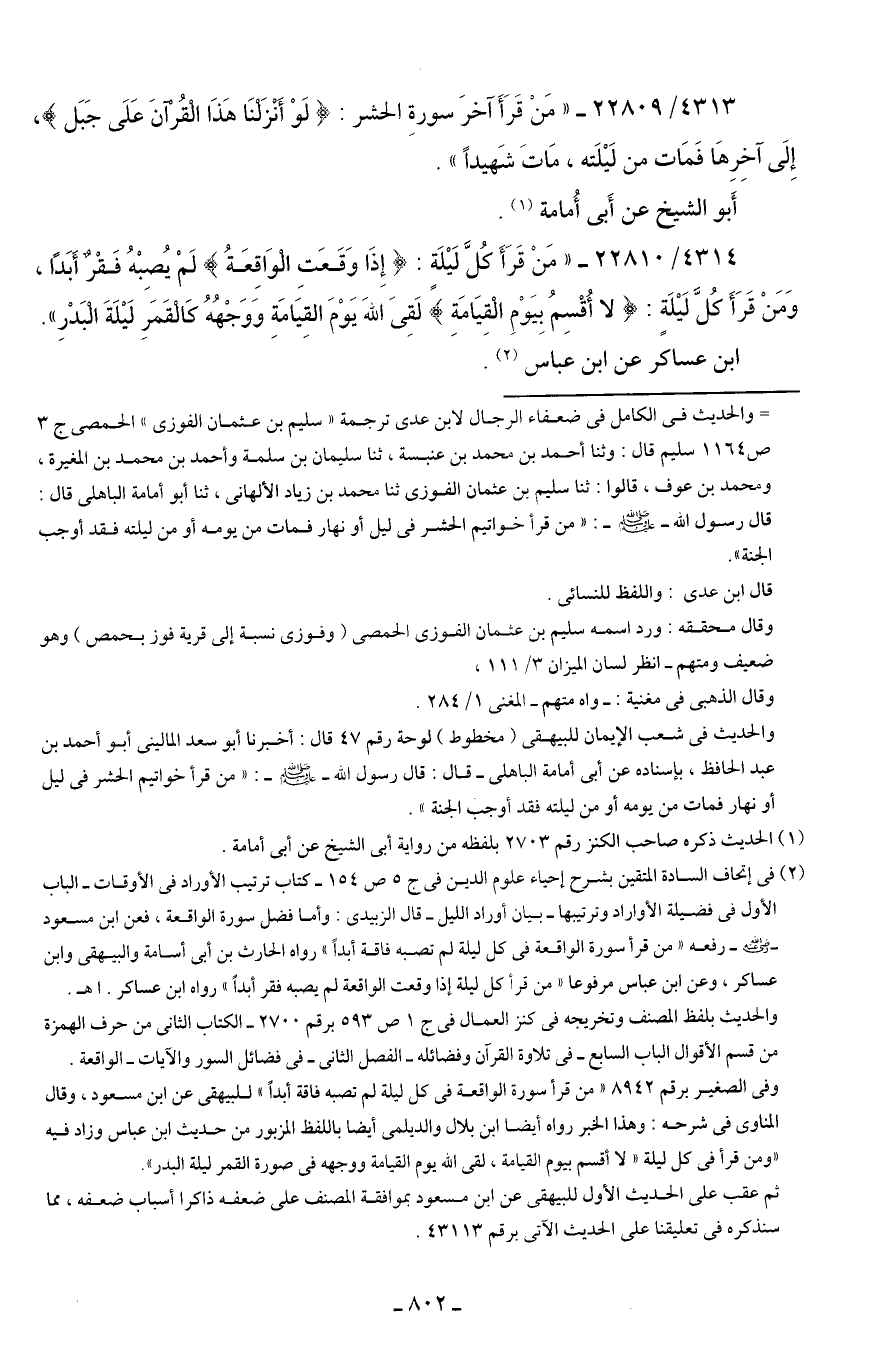 ٤٣١٣/ ٢٢٨٠٩ ـ « مَنْ قَرَأَ آخرَ سورةِ الحشر : ﴿ لَوْ أَنْزَلْنَا هَذَا الْقُرْآنَ عَلَى جَبَلٍ ﴾،
إِلَى آخِرِهَا فَمَات مِن لَيْلَتِه ، مَاتَ شَهِيداً » .
أَبو الشيخ عن أَبى أُمامة (١) .
٤٣١٤/ ٢٢٨١٠ ـ « مَنْ قَرَأَ كُلَّ لَيْلَةٍ : ﴿ إِذَا وَقَعَتِ الْوَاقِعَةُ ﴾ لَمْ يُصِبْهُ فَقْرٌ أَبَدًا ،
وَمَنْ قَرَأَ كُلَّ لَيْلَةٍ : ﴿ لا أُقْسِمُ بِيَوْمِ الْقِيَامَةِ ﴾ لَقِىَ اللهَ يَوْمَ القِيَامَةِ وَوَجْهُهُ كَالْقَمَرِ لَيْلَةَ البَدْرِ».
ابن عساكر عن ابن عباس (٢) .
= والحديث فى الكامل فى ضعفاء الرجال لابن عدى ترجمة « سليم بن عثمان الفوزى » الحمصى ج ٣
ص١١٦٤ سليم قال : وثنا أحمد بن محمد بن عنبسة ، ثنا سليمان بن سلمة وأحمد بن محمد بن المغيرة ،
ومحمد بن عوف ، قالوا : ثنا سليم بن عثمان الفوزى ثنا محمد بن زياد الألهانى ، ثنا أبو أمامة الباهلى قال :
قال رسول الله ـ ﷺ ـ : « من قرأ خواتيم الحشر فى ليل أو نهار فمات من يومه أو من ليلته فقد أوجب
الجنة».
قال ابن عدى : واللفظ للنسائى .
وقال محققه : ورد اسمه سليم بن عثمان الفوزى الحمصى ( وفوزى نسبة إلى قرية فوز بحمص ) وهو
ضعيف ومتهم ـ انظر لسان الميزان ٣/ ١١١ ،
وقال الذهبى فى مغنية : ـ واه متهم ـ المغنى ١/ ٢٨٤ .
والحديث فى شعب الإيمان للبيهقى ( مخطوط ) لوحة رقم ٤٧ قال : أخبرنا أبو سعد المالينى أبو أحمد بن
عبد الحافظ ، بإسناده عن أبى أمامة الباهلى ـ قال : قال رسول الله ـ ﷺ ـ : « من قرأ خواتيم الحشر فى ليل
أو نهار فمات من يومه أو من ليلته فقد أوجب الجنة » .
(١) الحديث ذكره صاحب الكنز رقم ٢٧٠٣ بلفظه من رواية أبى الشيخ عن أبى أمامة .
(٢) فى إتحاف السادة المتقين بشرح إحياء علوم الدين فى ج ٥ ص ١٥٤ ـ كتاب ترتيب الأوراد فى الأوقات ـ الباب
الأول فى فضيلة الأوراد وترتيبها ـ بيان أوراد الليل ـ قال الزبيدى : وأما فضل سورة الواقعة ، فعن ابن مسعود
ـ رضي الله عنه ـ رفعه « من قرأ سورة الواقعة فى كل ليلة لم تصبه فاقة أبداً » رواه الحارث بن أبى أسامة والبيهقى وابن
عساكر ، وعن ابن عباس مرفوعا « من قرأ كل ليلة إذا وقعت الواقعة لم يصبه فقر أبداً » رواه ابن عساكر . ا هـ .
والحديث بلفظ المصنف وتخريجه فى كنز العمال فى ج ١ ص ٥٩٣ برقم ٢٧٠٠ ـ الكتاب الثانى من حرف الهمزة
من قسم الأقوال الباب السابع ـ فى تلاوة القرآن وفضائله ـ الفصل الثانى ـ فى فضائل السور والآيات ـ الواقعة .
وفى الصغير برقم ٨٩٤٢ « من قرأ سورة الواقعة فى كل ليلة لم تصبه فاقة أبداً » للبيهقى عن ابن مسعود ، وقال
المناوى فى شرحه : وهذا الخبر رواه أيضا ابن بلال والديلمى أيضا باللفظ المزبور من حديث ابن عباس وزاد فيه
«ومن قرأ فى كل ليلة « لا أقسم بيوم القيامة ، لقى الله يوم القيامة ووجهه فى صورة القمر ليلة البدر».
ثم عقب على الحديث الأول للبيهقى عن ابن مسعود بموافقة المصنف على ضعفه ذاكرا أسباب ضعفه ، مما
سنذكره فى تعليقنا على الحديث الآتى برقم ٤٣١١٣ .
ـ ٨٠٢ ـ